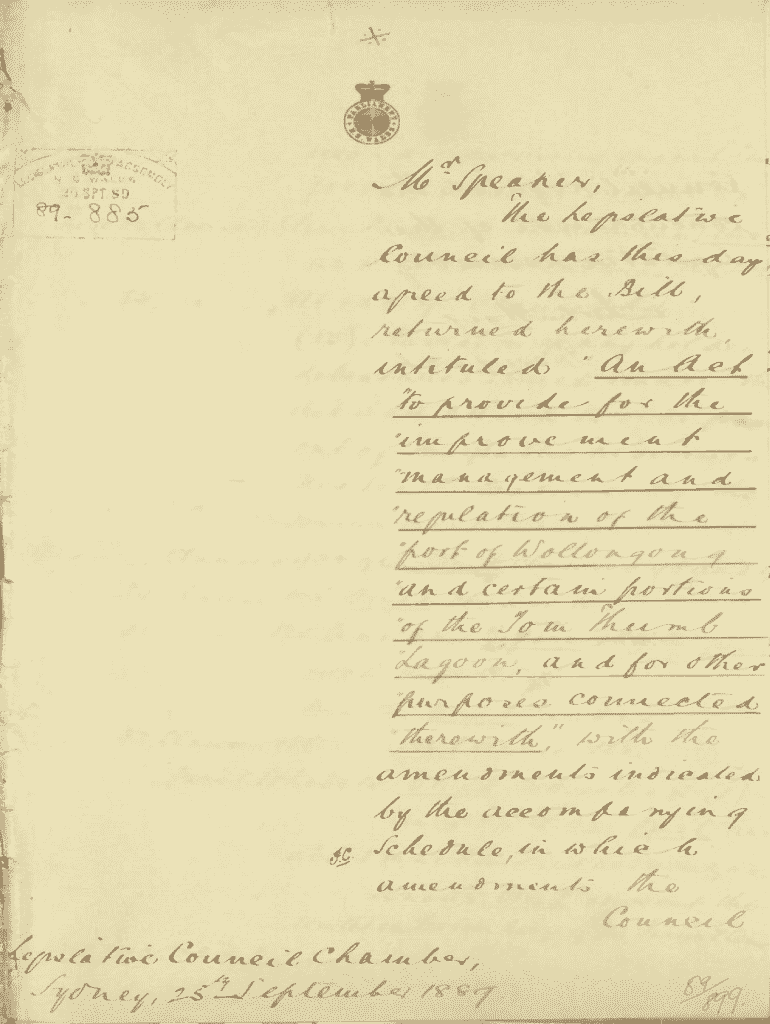 PARLIAMENT
N.S. WALES
LEGISLATIVE ASSEMBLY
N. S. WALES
SPT. 89
89- 885
Mr Speaker,
The Legislative
Council has this day
agreed to the Bill,
returned herewith,
intituled "An Act
"to provide for the
"improvement
"management and
"regulation of the
"port of Wollongong
"and certain portions
"of the Tom Thumb
"Lagoon, and for other
"purposes connected
"therewith", with the
amendments indicated
by the accompanying
Schedule, in which
amendments the
Council
Legislative Council Chamber,
Sydney, 25th September 1889
89/899.